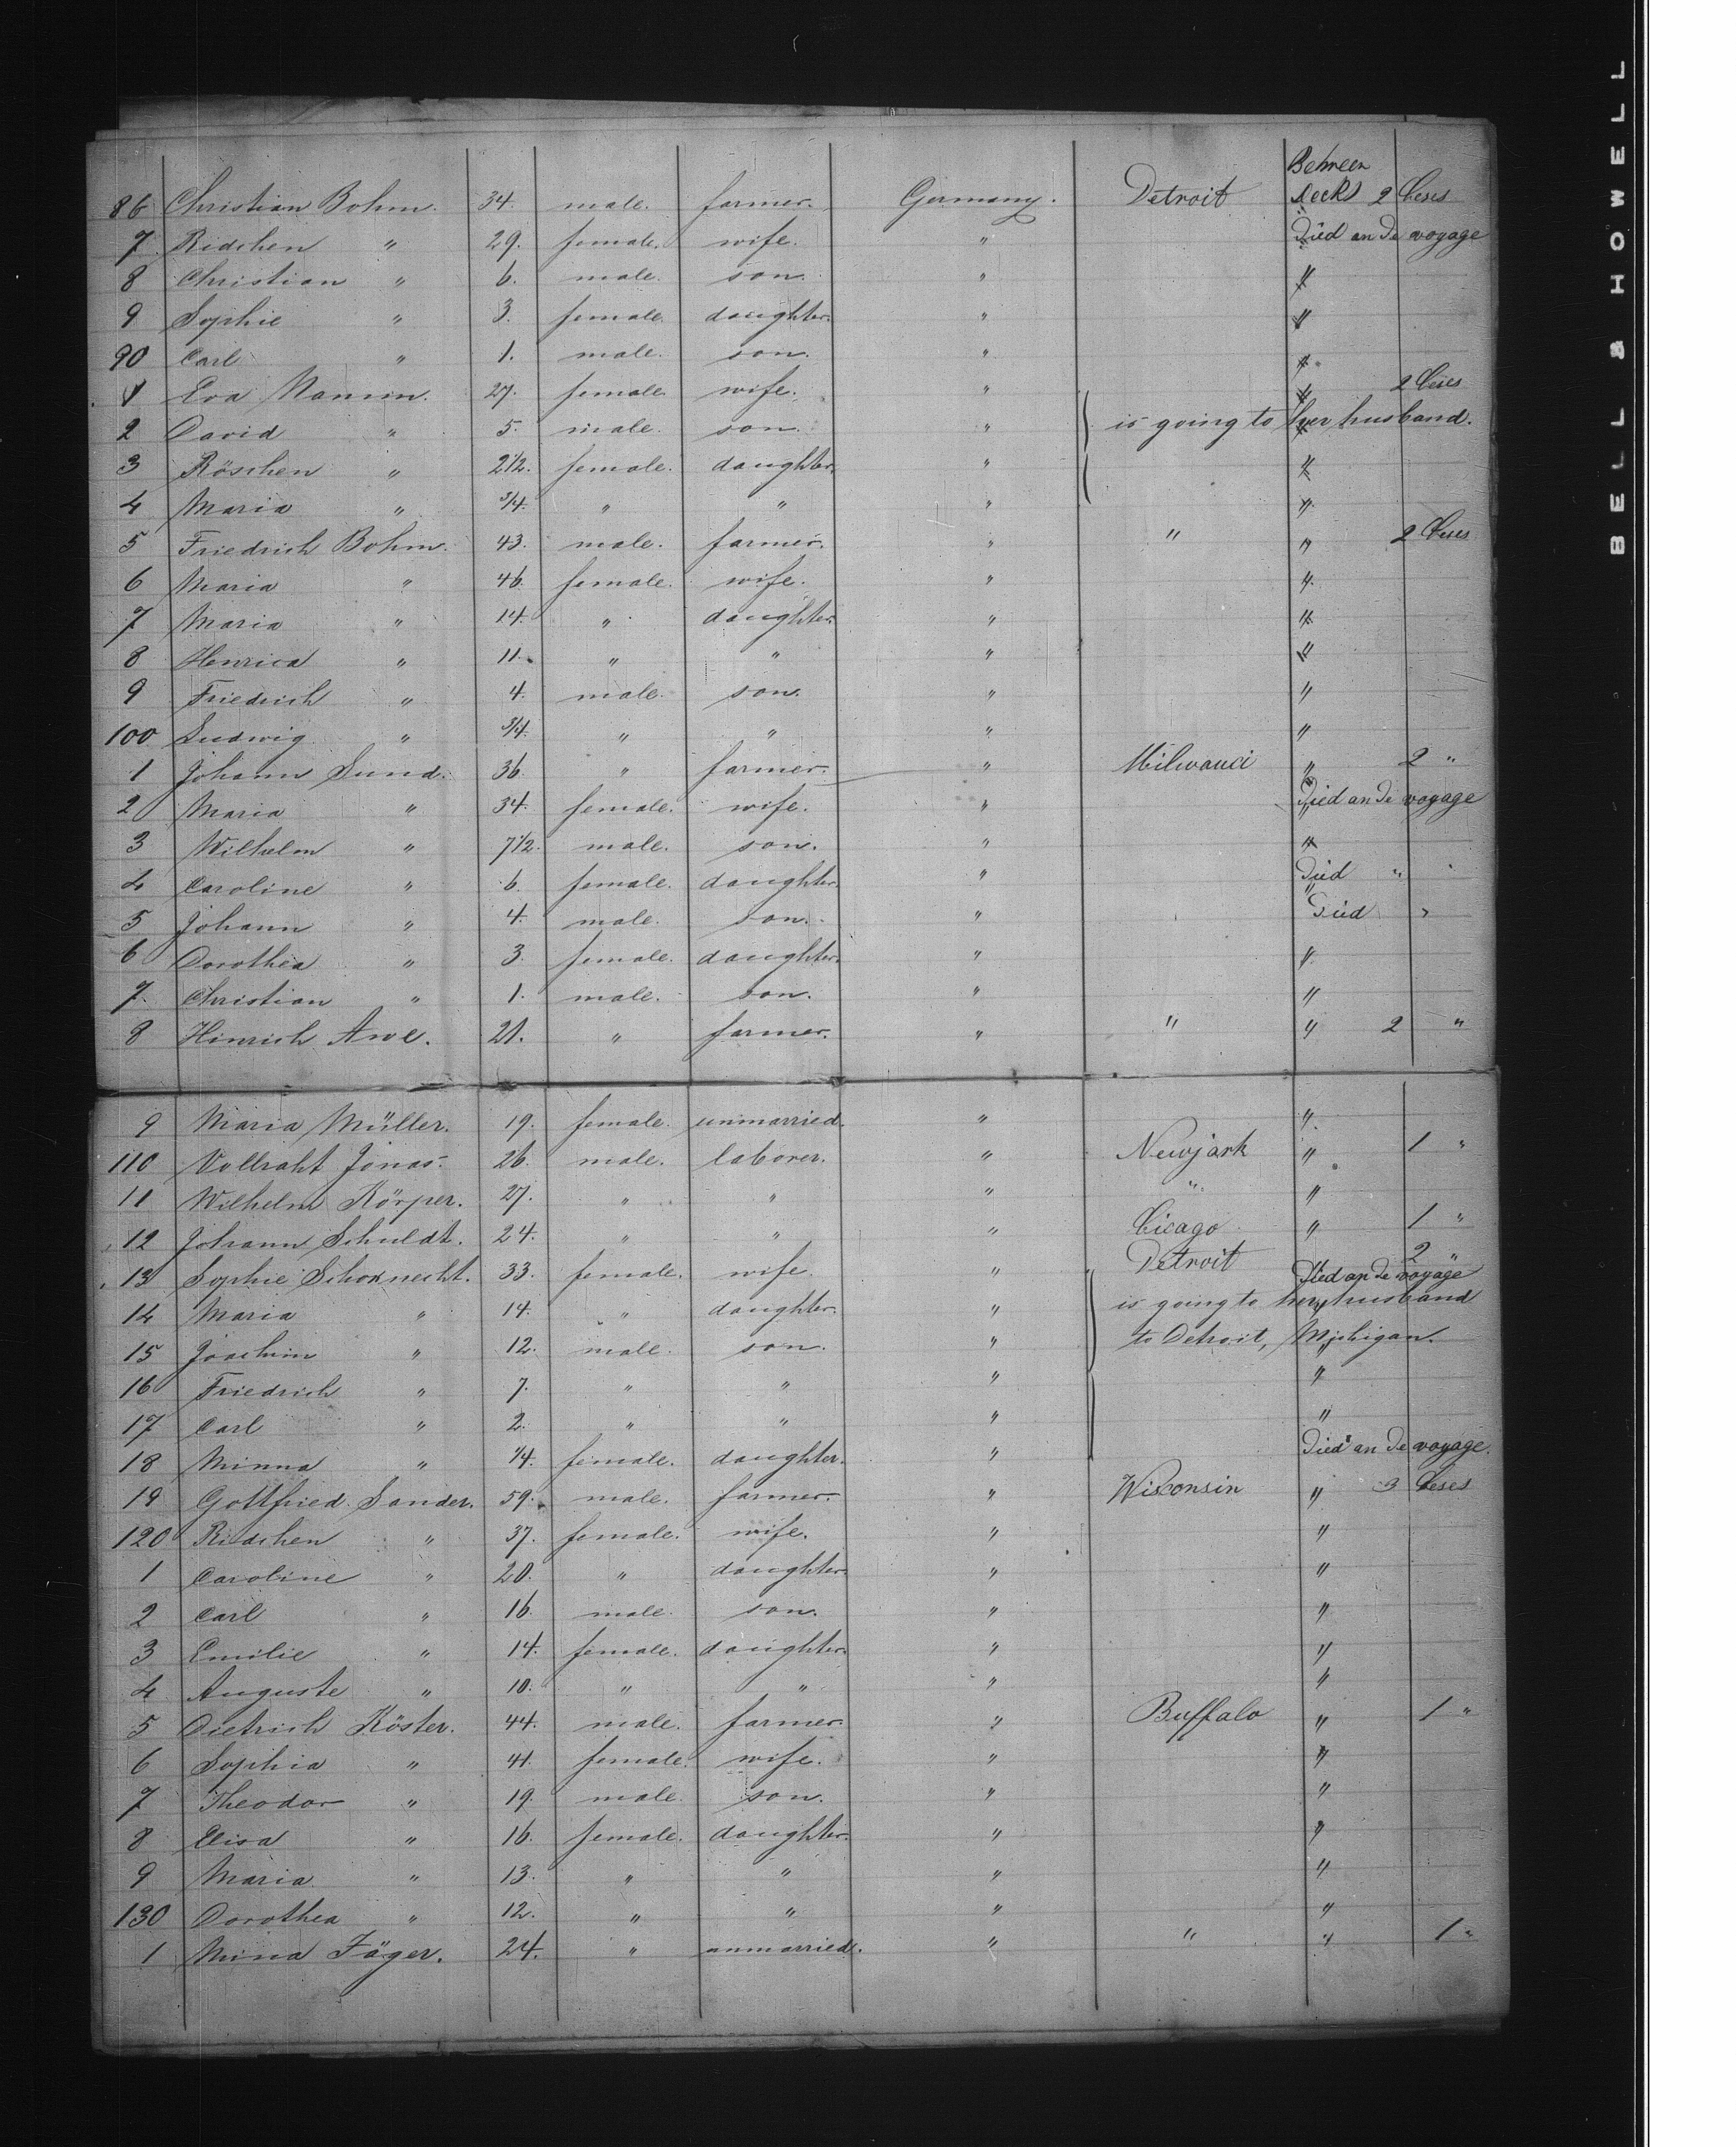 Between
86 Christian Bohm. 34. male. farmer. Germany. Detroit Decks 2 Ceses
7. Ridchen " 29. female. wife. " Died an de voyage
8 Christian " 6. male. son. " "
9 Sophie " 3. female. daughter. " "
90 Carl " 1. male. son. " "
1 Eva 27. female. wife. " " 2 Ceses
2 David " 5. male. son. " is going to her husband.
3 Röschen " 2 1/2. female. daughter. " "
4 Maria " 3/4. " " " "
5 Friedrich Bohm. 43. male. farmer. " " " 2 Ceses
6 Maria " 46. female. wife. " "
7 Maria " 14. " daughter. " "
8 Henrica " 11. " " " "
9 Friedrich " 4. male. son. " "
100 Ludwig " 3/4. " " " "
1 Johann Sund. 36. " farmer. " Milwauci " 2 "
2 Maria " 34. female. wife. " Died an de voyage
3 Wilhelm " 7 1/2. male. son. " "
4 Caroline " 6. female. daughter. " Died "
5 Johann " 4. male. son. " Died "
6 Dorothea " 3. female. daughter. " "
7. Christian " 1. male. son. " "
8 Hinrich Awe. 21. " farmer. " " " 2 "
9 Maria Müller. 19. female. unmarried. " "
110 Vollraht Jonas. 26. male. laborer. " Newjark " 1 "
11 Wilhelm Körper. 27. " " " " "
12 Johann Schuldt. 24. " " " Cicago " 1 "
13 Sophie Schoknecht. 33. female. wife. " Detroit 2 " Died an de voyage
14 Maria " 14. " daughter. " is going to her husband
15 Joachim " 12. male. son. " to Detroit, Mjchigan.
16 Friedrich " 7. " " " "
17 Carl " 2. " " " "
18 Minna " 1/4. female. daughter. " Died an de voyage.
19 Gottfried Sander. 59. male. farmer. " Wisconsin " 3 Ceses
120 Ridchen " 37. female. wife. " "
1 Caroline " 20. " daughter. " "
2 Carl " 16. male. son. " "
3 Emilie " 14. female. daughter. " "
4 Auguste " 10. " " " "
5 Dietrich Köster. 44. male. farmer. " Buffalo " 1 "
6 Sophia " 41. female. wife. " "
7 Theodor " 19. male. son. " "
8 Elisa " 16. female. daughter. " "
9 Maria " 13. " " " "
130 Dorothea " 12. " " " "
1 Mina Jäger. 24. " unmarried. " " " 1 "
BELL & HOWELL